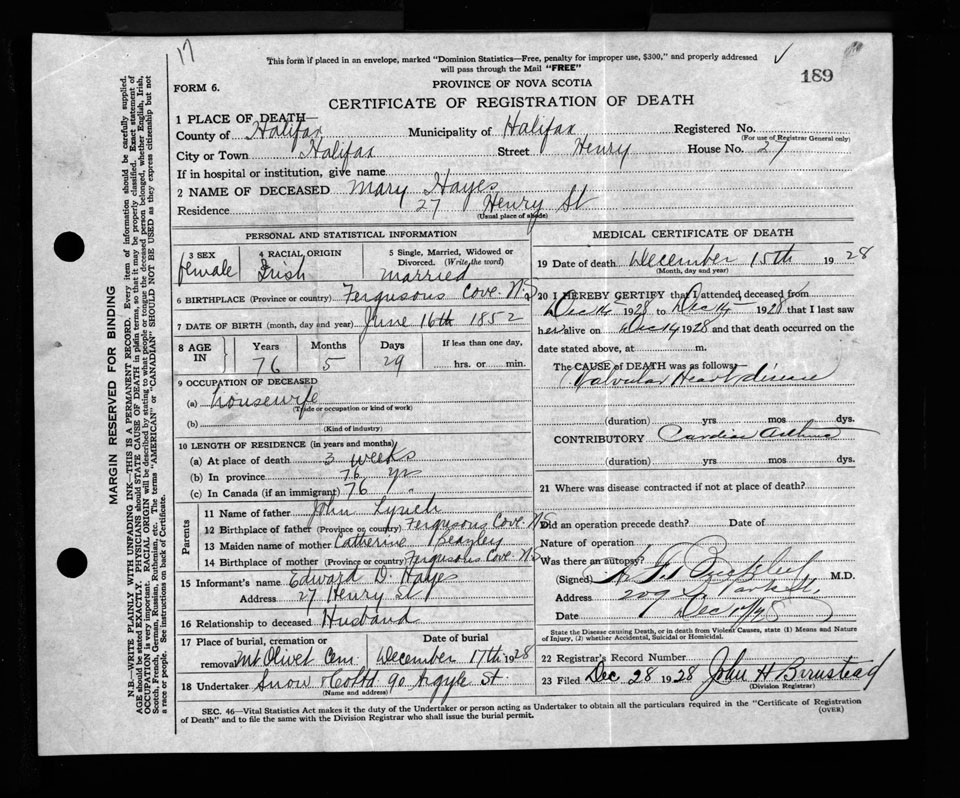 17
This form if placed in an envelope, marked "Dominion Statistics—Free, penalty for improper use, $300," and properly addressed
will pass through the Mail "FREE"
189
FORM 6.
PROVINCE OF NOVA SCOTIA
CERTIFICATE OF REGISTRATION OF DEATH
1 PLACE OF DEATH—
County of Halifax Municipality of Halifax Registered No.
(For use of Registrar General only)
City or Town Halifax Street Henry House No. 27
If in hospital or institution, give name
2 NAME OF DECEASED Mary Hayes
Residence 27 Henry St
(Usual place of abode)
PERSONAL AND STATISTICAL INFORMATION
3 SEX
female
4 RACIAL ORIGIN
Irish
5 Single, Married, Widowed or
Divorced. (Write the word)
married
6 BIRTHPLACE (Province or country) Fergusons Cove. N.S
7 DATE OF BIRTH (month, day and year) June 16th 1852
8 AGE IN
Years Months Days
76 5 29
If less than one day,
hrs. or min.
9 OCCUPATION OF DECEASED
(a) housewife
(Trade or occupation or kind of work)
(b)
(Kind of industry)
10 LENGTH OF RESIDENCE (in years and months)
(a) At place of death 3 weeks
(b) In province 76 yrs
(c) In Canada (if an immigrant) 76 "
Parents
11 Name of father John Lynch
12 Birthplace of father (Province or country) Fergusons Cove. N.S
13 Maiden name of mother Catherine Beazley
14 Birthplace of mother (Province or country) Fergusons Cove. N.S
15 Informant's name Edward D. Hayes
Address 27 Henry St
16 Relationship to deceased Husband
17 Place of burial, cremation or
removal Mt Olivet Cem
Date of burial
December 17th 1928
18 Undertaker Snow & Co Ltd 90 Argyle St.
(Name and address)
MEDICAL CERTIFICATE OF DEATH
19 Date of death December 15th 1928
(Month, day and year)
20 I HEREBY CERTIFY that I attended deceased from
Dec 14 1928 to Dec 14 1928 that I last saw
her alive on Dec 14 1928 and that death occurred on the
date stated above, at m.
The CAUSE of DEATH was as follows:
Valvular Heart disease
(duration) yrs mos dys.
CONTRIBUTORY Cardiac Asthma
(duration) yrs mos dys.
21 Where was disease contracted if not at place of death?
Did an operation precede death? Date of
Nature of operation
Was there an autopsy?
(Signed) M.D.
Address 209
Date Dec
State the Disease causing Death, or in death from Violent Causes, state (1) Means and Nature
of Injury, (2) whether Accidental, Suicidal or Homicidal.
22 Registrar's Record Number
23 Filed Dec 28 1928 John H Barnstead
(Division Registrar)
SEC. 46—Vital Statistics Act makes it the duty of the Undertaker or person acting as Undertaker to obtain all the particulars required in the "Certificate of Registration
of Death" and to file the same with the Division Registrar who shall issue the burial permit.
(OVER)
MARGIN RESERVED FOR BINDING
N.B.—WRITE PLAINLY WITH UNFADING INK—THIS IS A PERMANENT RECORD. Every item of information should be carefully supplied.
AGE should be stated EXACTLY. PHYSICIANS should STATE CAUSE OF DEATH in plain terms, so that it may be properly classified. Exact statement of
OCCUPATION is very important. RACIAL ORIGIN will be described by stating to what people or tongue the deceased person belonged, whether English, Irish,
Scotch, French, German, Russian, Ruthenian, etc. The terms "AMERICAN" or "CANADIAN" SHOULD NOT BE USED as they express citizenship but not
a race or people. See instructions on back of Certificate.